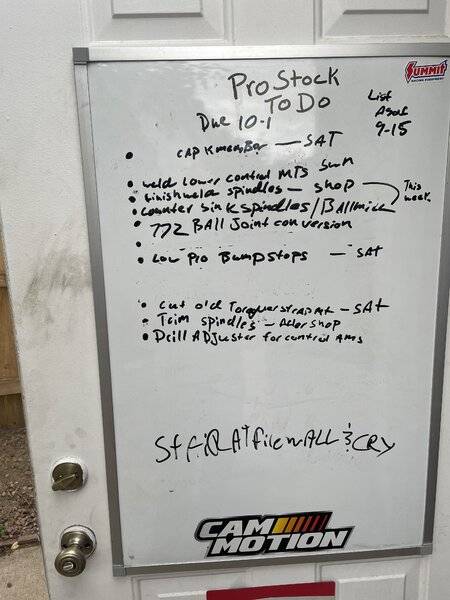 Pro Stock
To Do
Due 10-1
List
As of
9-15
SUMMIT
RACING EQUIPMENT
• CAP K memBar — SAT
• weld lower control MTS Sun
• Finish weld spindles — shop
• counter sink spindles/BAll mill
This
week
• 772 BAll Joint conversion
•
• Low Pro Bump stops — SAT
• Cut old Torque strap mt — SAT
• Trim spindles — After shop
• Drill ADJuster for control Arms
At ALL & CRY
CAM
MOTION